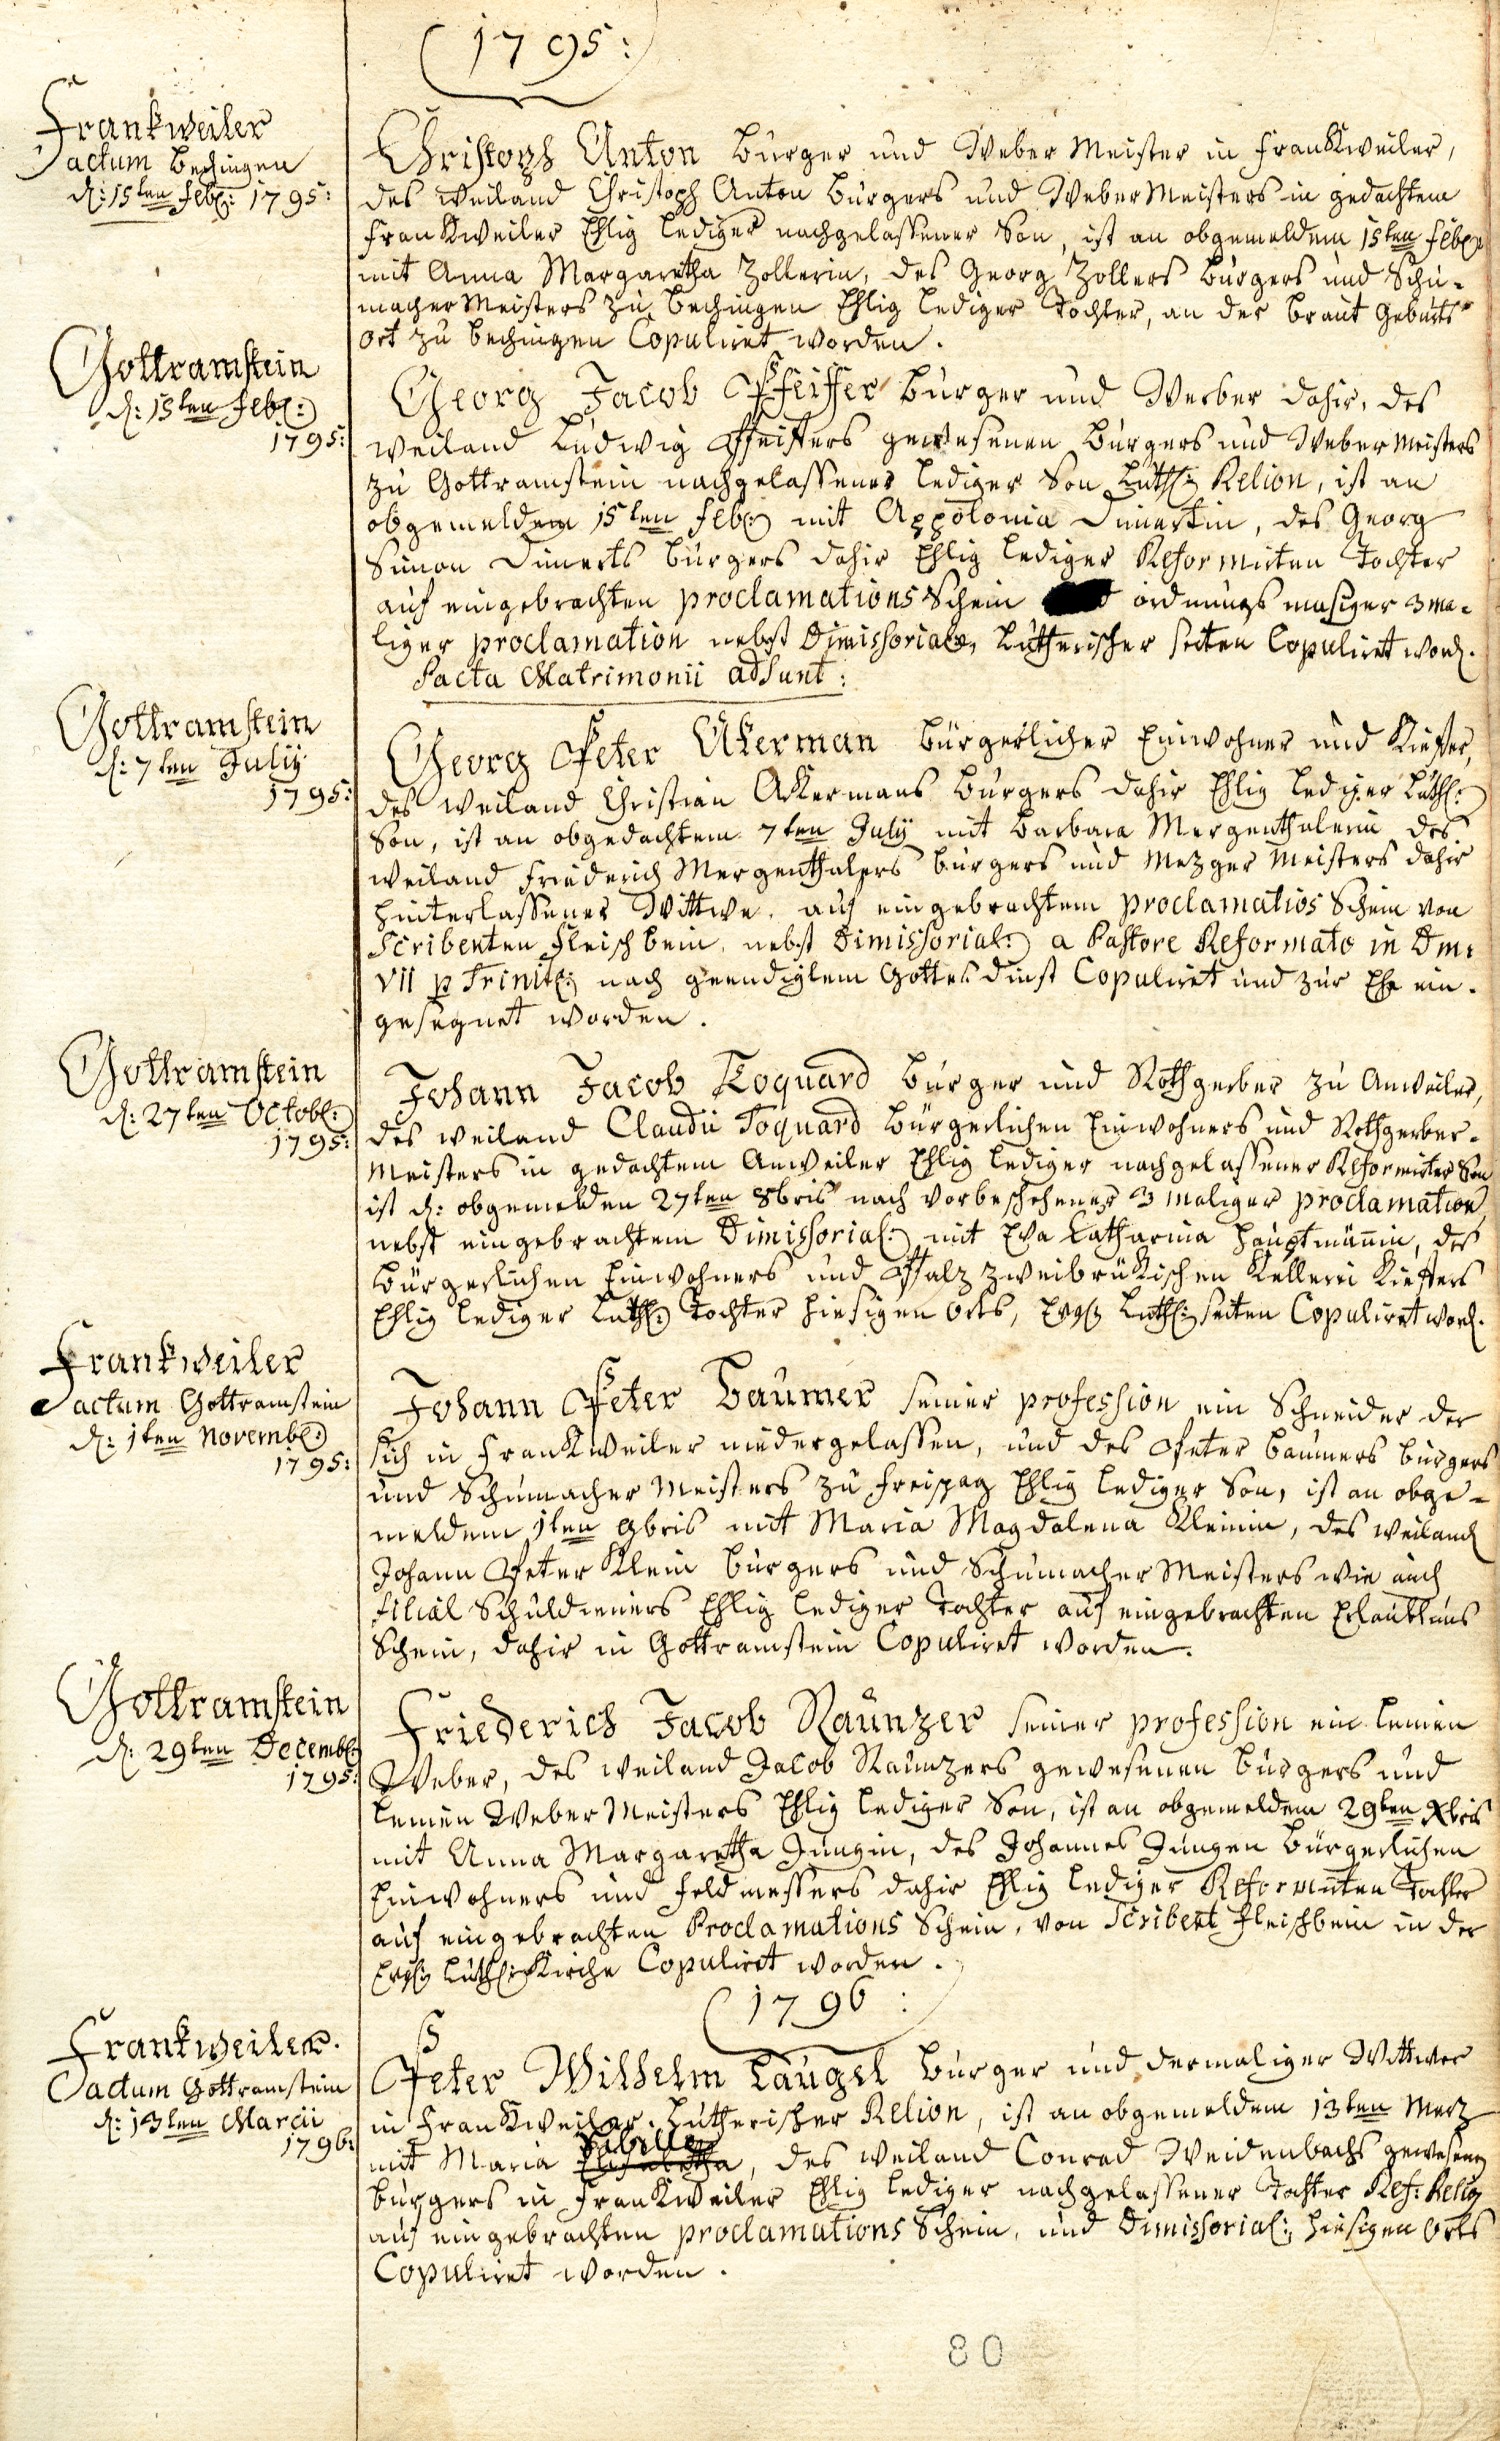 1795:
Frankweiler
actum Bechingen
d: 15ten Feb: 1795:
Christoph Anton Bürger und Weber Meister in Frankweiler,
des weiland Christoph Anton Bürgers und Weber Meisters in gedachtem
Frankweiler Ehlig lediger nachgelassener Son, ist an obgemeldem 15ten Feb:
mit Anna Margaretha Zollerin, des Georg Zollers Bürgers und Schu-
macher Meisters zu Bechingen Ehlig lediger Tochter, an der Braut Geburts
Ort zu Bechingen Copuliret worden.
Gottramstein
d: 15ten Feb:
1795:
Georg Jacob Pfeiffer Bürger und Weber dahir, des
weiland Ludwig Pfeiffers gewesenen Bürgers und Weber Meisters
zu Gottramstein nachgelassener lediger Son Luth: Relion, ist an
obgemeldem 15ten Feb: mit Appolonia Dinertin, des Georg
Simon Dinerts Bürgers dahir Ehlig lediger Reformirten Tochter
auf eingebrachten proclamations Schein ordnungs masiger 3 ma-
liger proclamation nebst Dimissorial, Lutherischer seiten Copuliret word.
Pacta Matrimonii adsunt:
Gottramstein
d: 7ten Julij
1795:
Georg Peter Akerman Bürgerlicher Einwohner und Kieffer,
des weiland Christian Akermans Bürgers dahir Ehlig lediger Luth:
Son, ist an obgedachtem 7ten July mit Barbara Mergenthalerin des
weiland Friederich Mergenthalers Bürgers und Metzger Meisters dahir
hinterlassener Wittwe, auf eingebrachtem proclamatios Schein von
Scribenten Fleischbein, nebst Dimissorial: a Pastore Reformato in Dm:
VII p Trinit: nach geendigtem Gottes dinst Copuliret und zur Ehe ein-
gesegnet worden.
Gottramstein
d: 27ten Octob:
1795:
Johann Jacob Toquard Bürger und Rothgerber zu Anweiler,
des weiland Claudii Toquard Bürgerlichen Einwohners und Rothgerber-
Meisters in gedachtem Anweiler Ehlig lediger nachgelassener Reformirter Son
ist d: obgemelden 27ten 8bris nach vorbeschehener 3 maliger proclamation
nebst eingebrachtem Dimissorial: mit Eva Catharina Hauptmännin, des
Bürgerlichen Einwohners und Pfalz zweibrükischen Kellerei Kieffers
Ehlig lediger Luth: Tochter hiesigen Orts, Evg: Luth: seiten Copuliret word.
Frankweiler
actum Gottramstein
d: 1ten Novemb:
1795:
Johann Peter Baumer seiner profession ein Schneider der
sich in Frankweiler niedergelassen, und des Peter Baumers Bürgers
und Schumacher Meisters zu Freispag Ehlig lediger Son, ist an obge-
meldem 1ten 9bris mit Maria Magdalena Kleinin, des weiland
Johann Peter Klein Bürgers und Schumacher Meisters wie auch
filial Schuldieners Ehlig lediger Tochter auf eingebrachten Erlaubtnus
Schein, dahir in Gottramstein Copuliret worden.
Gottramstein
d: 29ten Decemb:
1795:
Friederich Jacob Raunzer seiner profession ein leinen
Weber, des weiland Jacob Raunzers gewesenen Bürgers und
leinen Weber Meisters Ehlig lediger Son, ist an obgemeldem 29ten Xbris
mit Anna Margaretha Jungin, des Johannes Jungen Bürgerlichen
Einwohners und Feldmessers dahir Ehlig lediger Reformirten Tochter
auf eingebrachten Proclamations Schein, von Scribent Fleischbein in der
Evg: Luth: Kirche Copuliret worden.
1796:
Frankweiler.
actum Gottramstein
d: 13ten Marcii
1796:
Peter Wilhelm Laugel Bürger und dermaliger Wittwer
in Frankweiler. Lutherischer Relion, ist an obgemeldem 13ten Merz
mit Maria Sabilla Elisabetha, des weiland Conrad Weidenbachs gewesenen
Bürgers in Frankweiler Ehlig lediger nachgelassener Tochter Ref: Relig
auf eingebrachten proclamations Schein, und Dimissorial: hiesigen Orts
Copuliret worden.
80